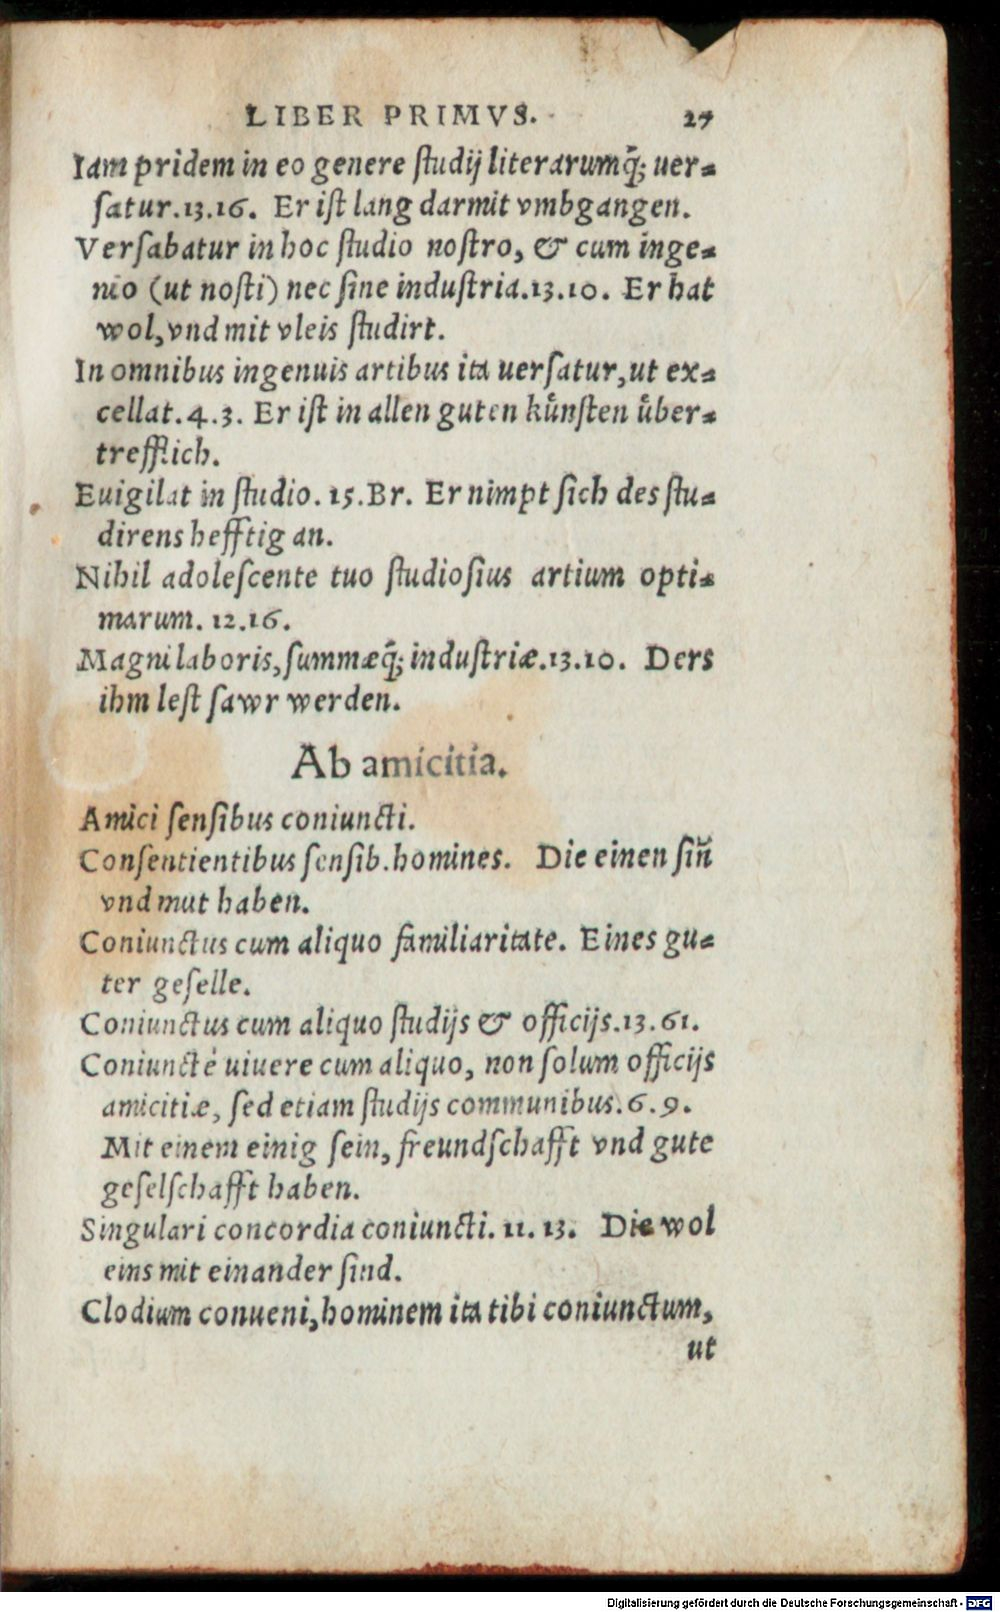 LIBER PRIMVS. 27
Iam pridem in eo genere ſtudij literarumq̃; uer-
ſatur.13.16. Er iſt lang darmit vmbgangen.
Verſabatur in hoc ſtudio noſtro, & cum inge-
nio (ut noſti) nec ſine induſtria.13.10. Er hat
wol, vnd mit vleis ſtudirt.
In omnibus ingenuis artibus ita uerſatur, ut ex-
cellat.4.3. Er iſt in allen guten kuͤnſten uͤber-
trefflich.
Euigilat in ſtudio. 15.Br. Er nimpt ſich des ſtu-
direns hefftig an.
Nihil adoleſcente tuo ſtudioſius artium opti-
marum. 12.16.
Magni laboris, ſummæq̃; induſtriæ.13.10. Ders
ihm leſt ſawr werden.
Ab amicitia.
Amici ſenſibus coniuncti.
Conſentientibus ſenſib. homines. Die einen ſiñ
vnd mut haben.
Coniunctus cum aliquo familiaritate. Eines gu-
ter geſelle.
Coniunctus cum aliquo ſtudijs & officijs.13.61.
Coniunctè uiuere cum aliquo, non ſolum officijs
amicitiæ, ſed etiam ſtudijs communibus.6.9.
Mit einem einig ſein, freundſchafft vnd gute
geſelſchafft haben.
Singulari concordia coniuncti. 11. 13. Die wol
eins mit einander ſind.
Clodium conueni, hominem ita tibi coniunctum,
ut
Digitalisierung gefördert durch die Deutsche Forschungsgemeinschaft - DFG